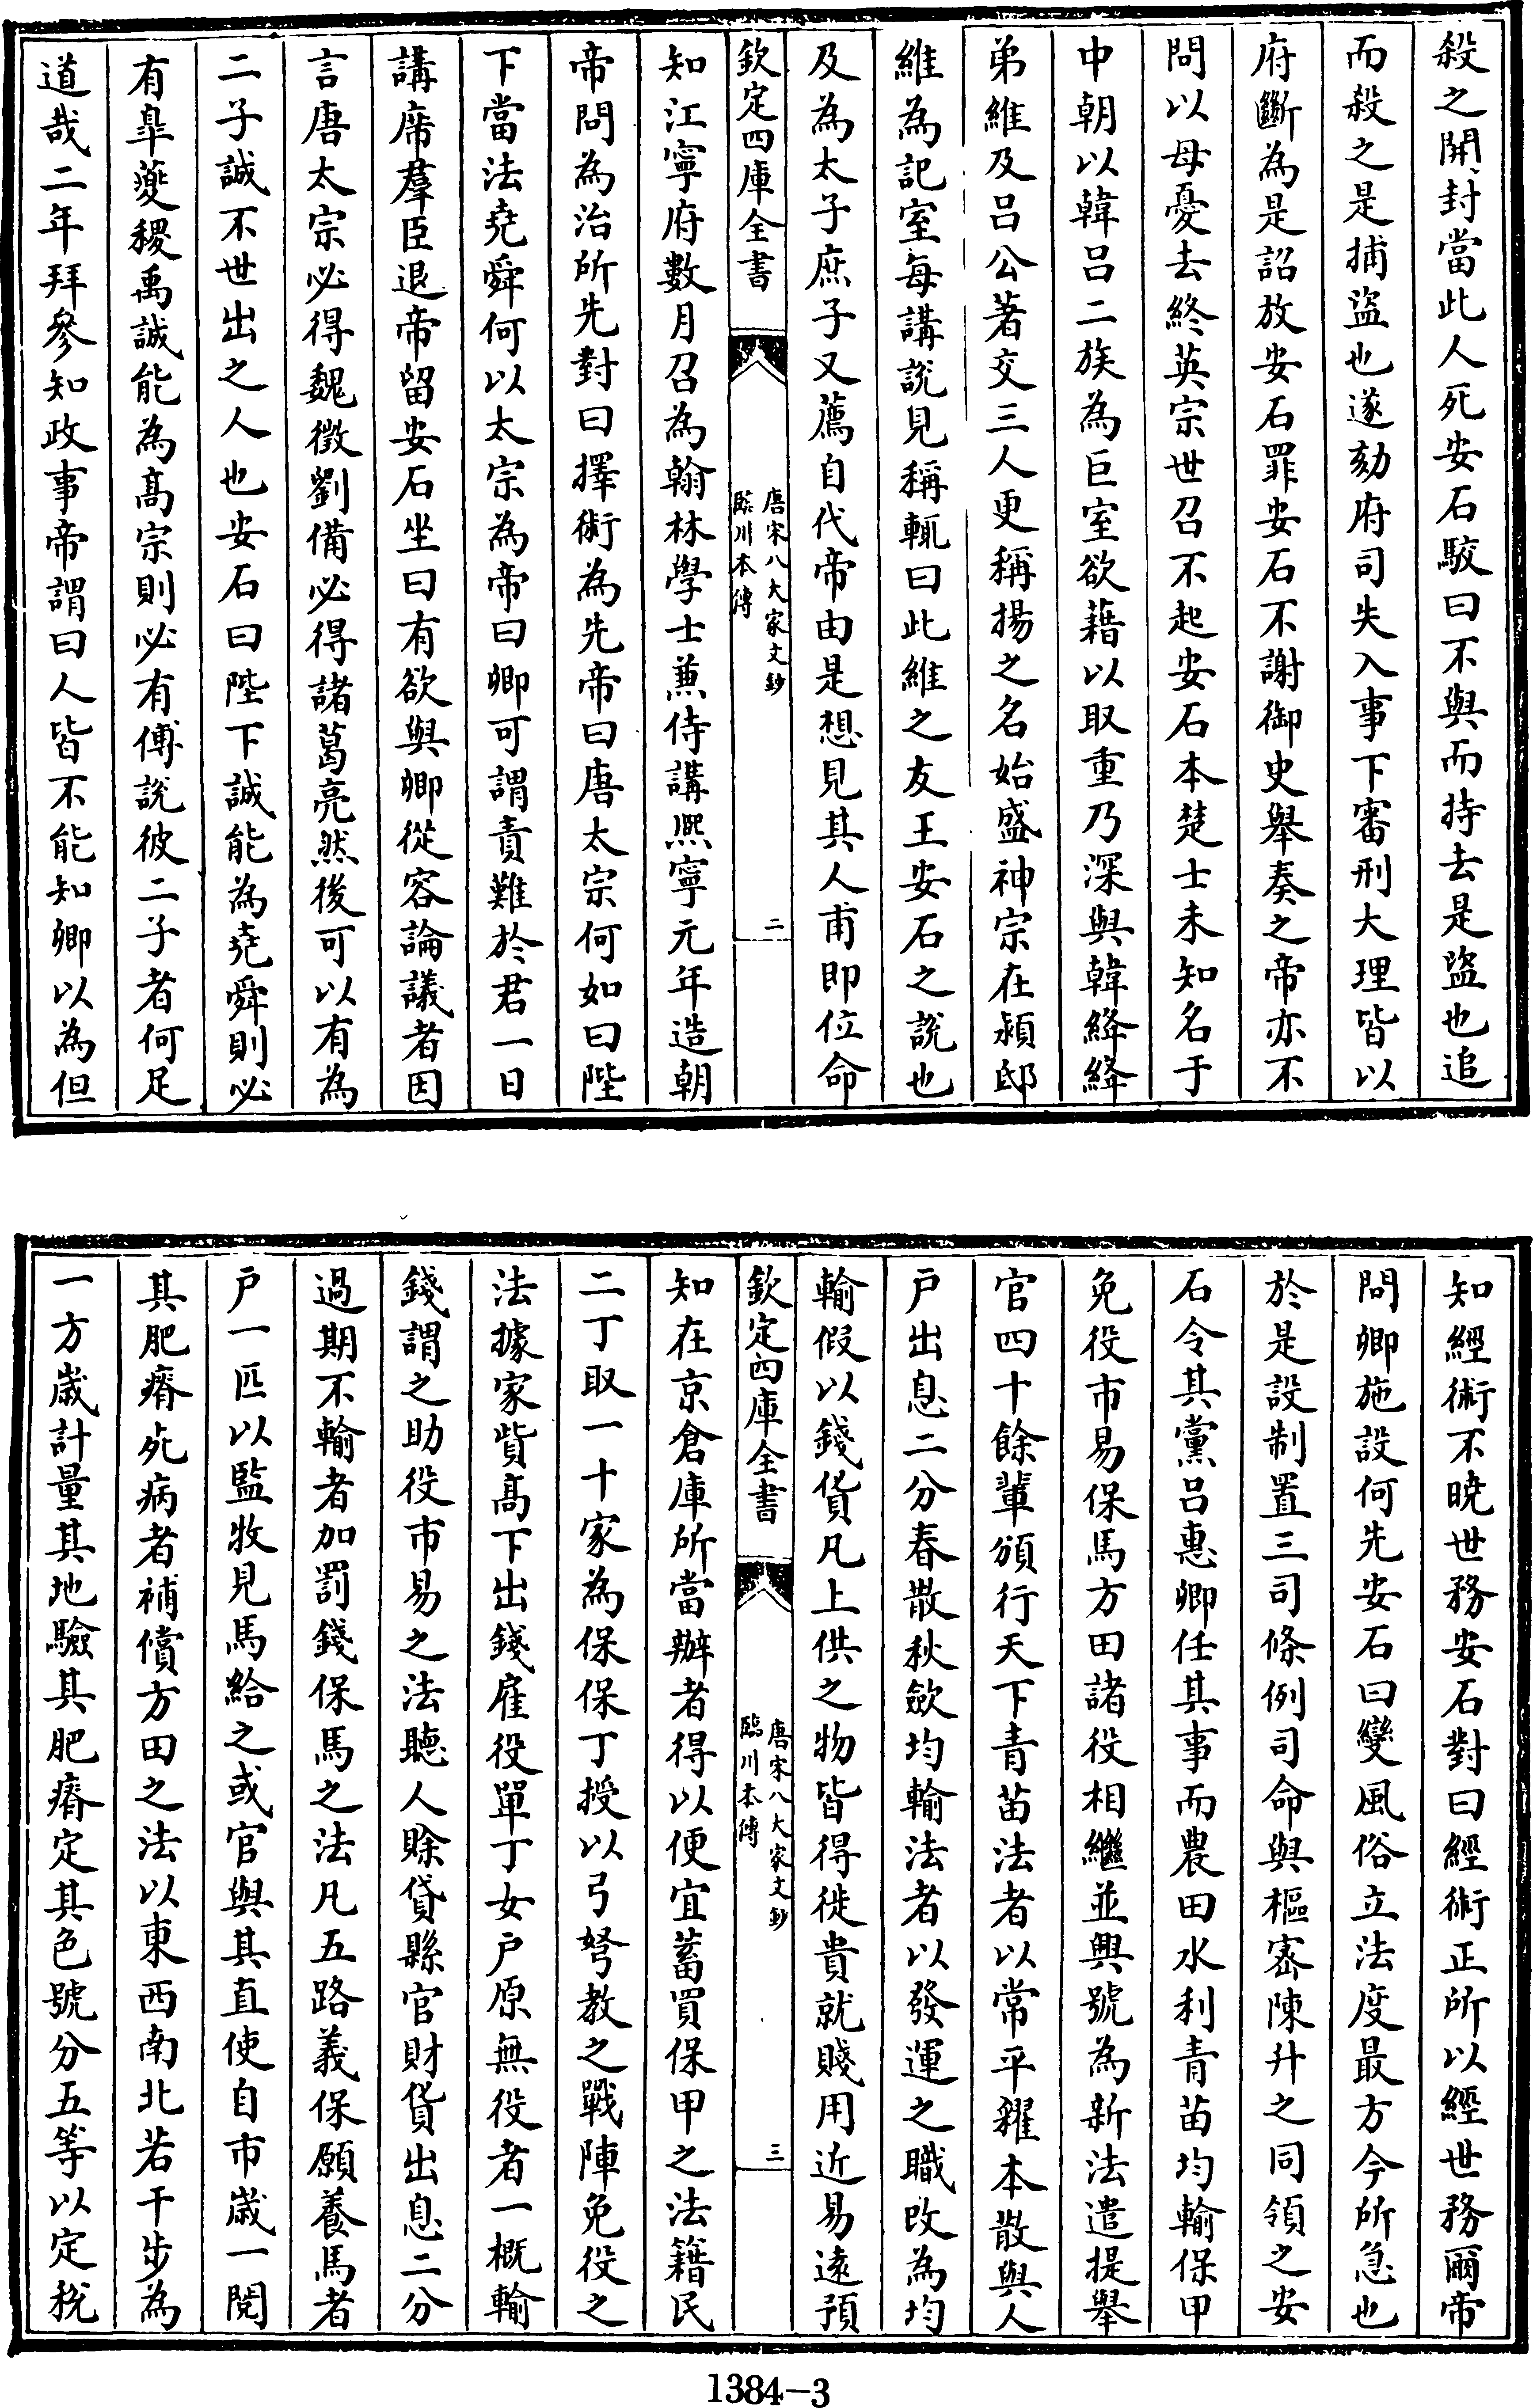 殺之開封當此人死安石駮曰不與而持去是盜也追
而殺之是捕盜也遂劾府司失入事下審刑大理皆以
府斷為是詔放安石罪安石不謝御史舉奏之帝亦不
問以母憂去終英宗世召不起安石本楚士未知名于
中朝以韓吕二族為巨室欲藉以取重乃深與韓絳絳
弟維及吕公著交三人更稱揚之名始盛神宗在潁邸
維為記室每講說見稱輒曰此維之友王安石之說也
及為太子庶子又薦自代帝由是想見其人甫即位命
欽定四庫全書
唐宋八大家文鈔
臨川本傳
二
知江寧府數月召為翰林學士兼侍講熙寧元年造朝
帝問為治所先對曰擇術為先帝曰唐太宗何如曰陛
下當法堯舜何以太宗為帝曰卿可謂責難於君一日
講席羣臣退帝留安石坐曰有欲與卿從容論議者因
言唐太宗必得魏徵劉備必得諸葛亮然後可以有為
二子誠不世出之人也安石曰陛下誠能為堯舜則必
有臯夔稷禹誠能為高宗則必有傅說彼二子者何足
道哉二年拜參知政事帝謂曰人皆不能知卿以為但
知經術不曉世務安石對曰經術正所以經世務爾帝
問卿施設何先安石曰變風俗立法度最方今所急也
於是設制置三司條例司命與樞密陳升之同領之安
石令其黨吕惠卿任其事而農田水利青苗均輸保甲
免役市易保馬方田諸役相繼並興號為新法遣提舉
官四十餘輩頒行天下青苗法者以常平糴本散與人
户出息二分春散秋歛均輸法者以發運之職改為均
輸假以錢貨凡上供之物皆得徙貴就賤用近易遠預
欽定四庫全書
唐宋八大家文鈔
臨川本傳
三
知在京倉庫所當辦者得以便宜蓄買保甲之法籍民
二丁取一十家為保保丁授以弓弩教之戰陣免役之
法據家貲高下出錢雇役單丁女户原無役者一概輸
錢謂之助役市易之法聽人賒貸縣官財貨出息二分
過期不輸者加罰錢保馬之法凡五路義保願養馬者
户一匹以監牧見馬給之或官與其直使自市歲一閱
其肥瘠死病者補償方田之法以東西南北若干步為
一方歲計量其地驗其肥瘠定其色號分五等以定稅
1384-3